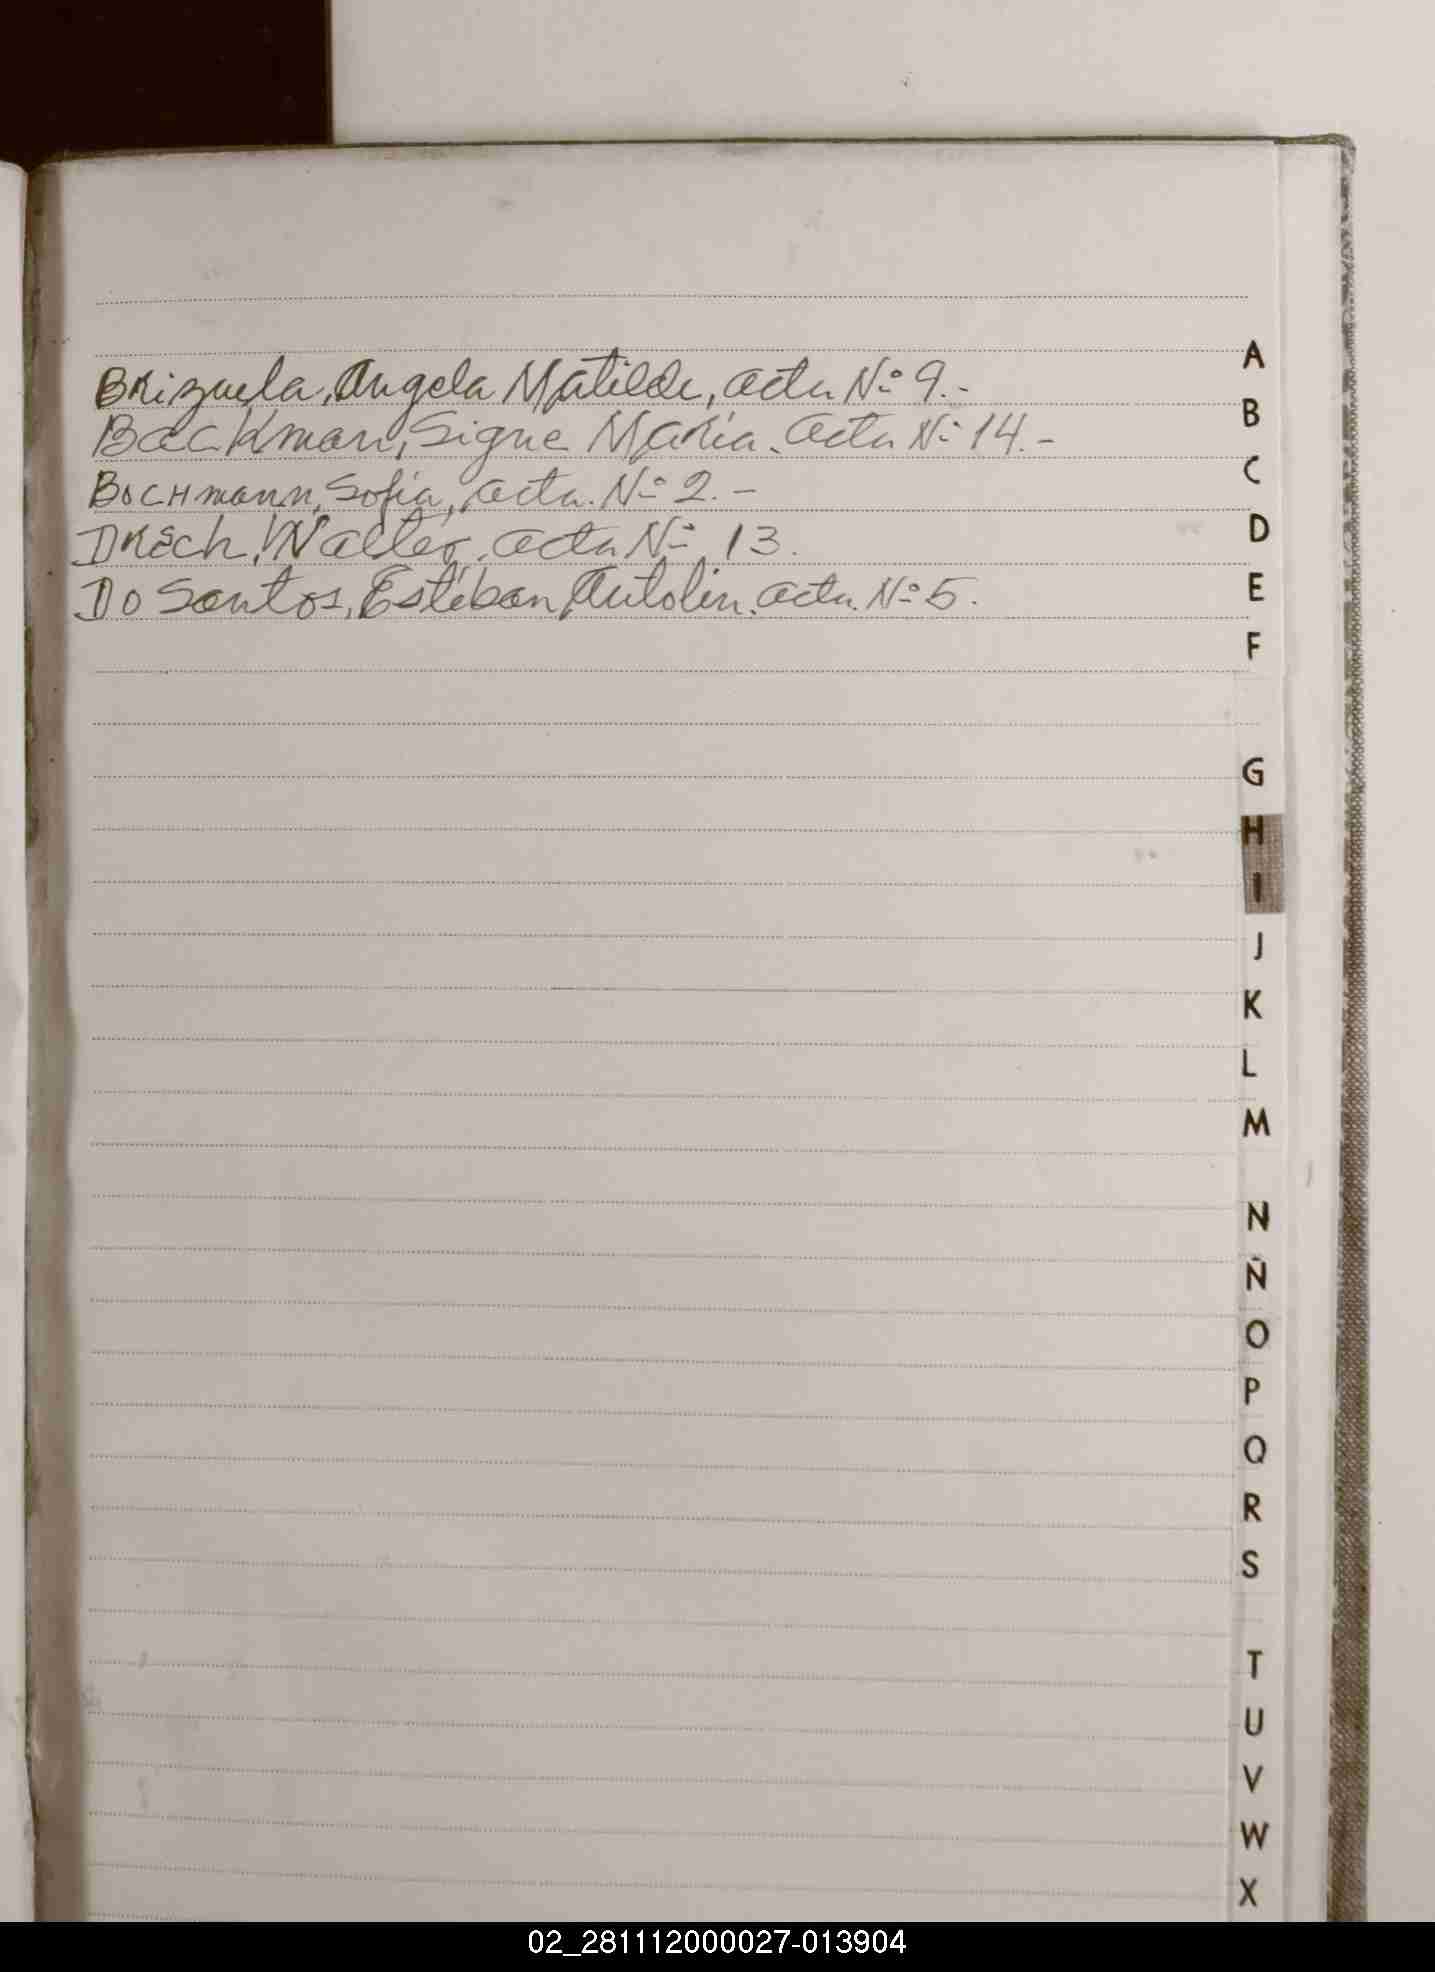 Brizuela, Angela Matilde, acta Nº 9.-
Backman, Signe Maria. acta Nº 14.-
Bochmann, Sofia, acta. Nº 2.-
Drech, Walter, acta Nº 13.
Do Santos, Estéban Antolin. acta. Nº 5.
A
B
C
D
E
F
G
H
I
J
K
L
M
N
Ñ
O
P
Q
R
S
T
U
V
W
X
02_281112000027-013904